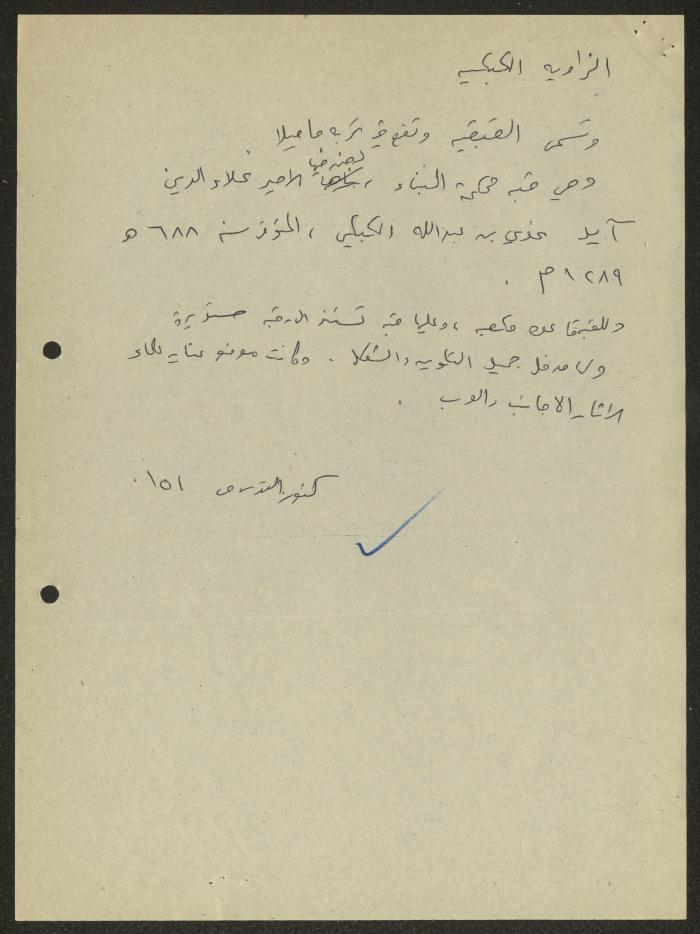 الزاويه الكبكيه
وتسمى القبقبيه وتقع في تربه ماميلا .
وهي قبه محكمة البناء ، دفن فيها الامير علاء الدين
آيد غدي بن عبدالله الكبكي ، المتوفى سنه ٦٨٨ هـ
١٢٨٩ م .
وللقبة قاعده مكعبه ، وعليها قبه تستند الى رقبه مستديرة
ولها مدخل جميل التكوين والشكل . وكانت موضع عنايه علماء
الاثار الاجانب والعرب .
كنوز القدس ص ١٥١ .